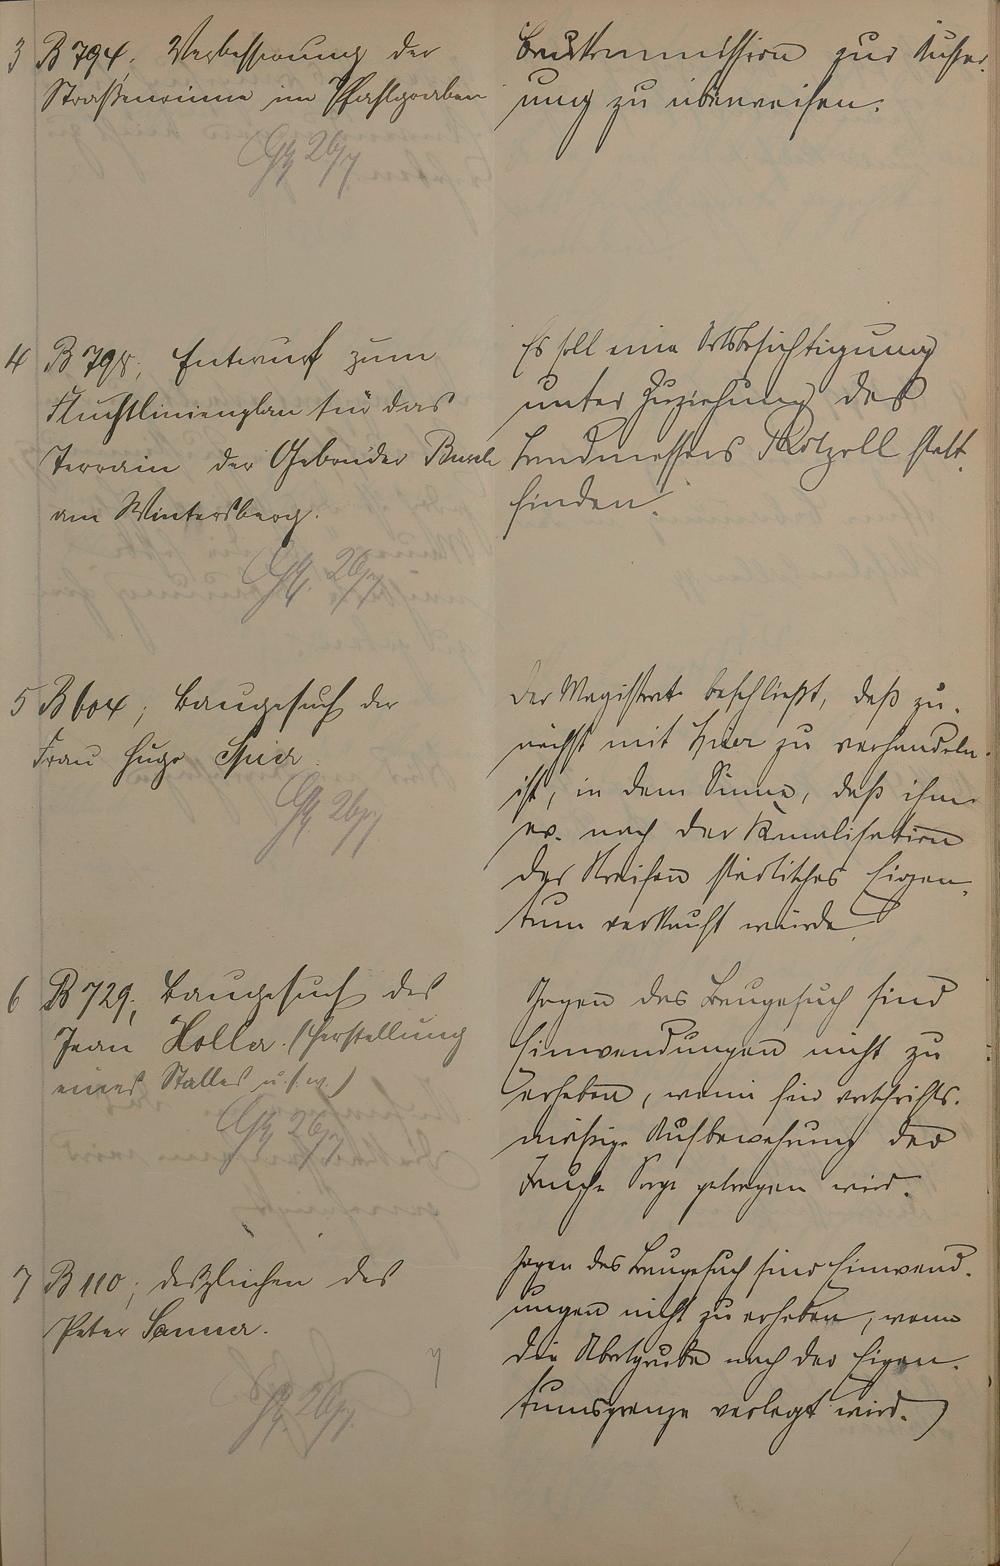 3 B 794; Verbesserung der
Straßenrinne im Pfahlgraben
Gz 26/7
Baukommission zur Äußer-
ung zu überweisen.
4 B 798; Entwurf zum
Fluchtlinienplan für das
Terrain der Gebrüder
am Wintersberg.
Gz. 26/7
Es soll eine Ortsbesichtigung
unter Zuziehung des
Landmessers Rotzoll statt-
finden.
5 B 604; Baugesuch der
Frau Hugo Spier.
Gz. 26/7
Der Magistrat beschließt, daß zu-
nächst mit Spier zu verhandeln
ist, in dem Sinne, daß ihm
ev. nach der Kanalisation
der Streifen städtisches Eigen-
tum verkauft würde
6 B 729; Baugesuch des
Jean Holler. (Herstellung
eines Stalles u.s.w.)
Gz 26/7
Gegen das Baugesuch sind
Einwendungen nicht zu
erheben, wenn für vorschrifts-
mäßige Aufbewahrung der
Jauche Sorge getragen wird.
7 B 110; desgleichen des
Peter Sanner.
Gz. 26/7.
Gegen das Baugesuch sind Einwend-
ungen nicht zu erheben, wenn
die Abortgrube nach der Eigen-
tumsgrenze verlegt wird.